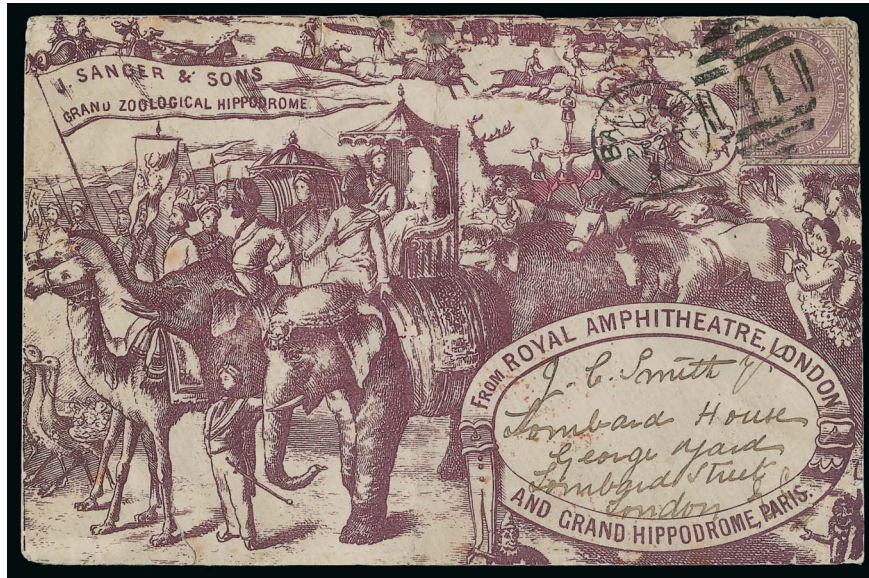 J. SANGER & SONS
GRAND ZOOLOGICAL HIPPODROME
INLAND REVENUE
PENNY
AP 2
41
FROM ROYAL AMPHITHEATRE, LONDON
J. C. Smith
Lombard House
George Yard
Lombard Street
London
AND GRAND HIPPODROME, PARIS.